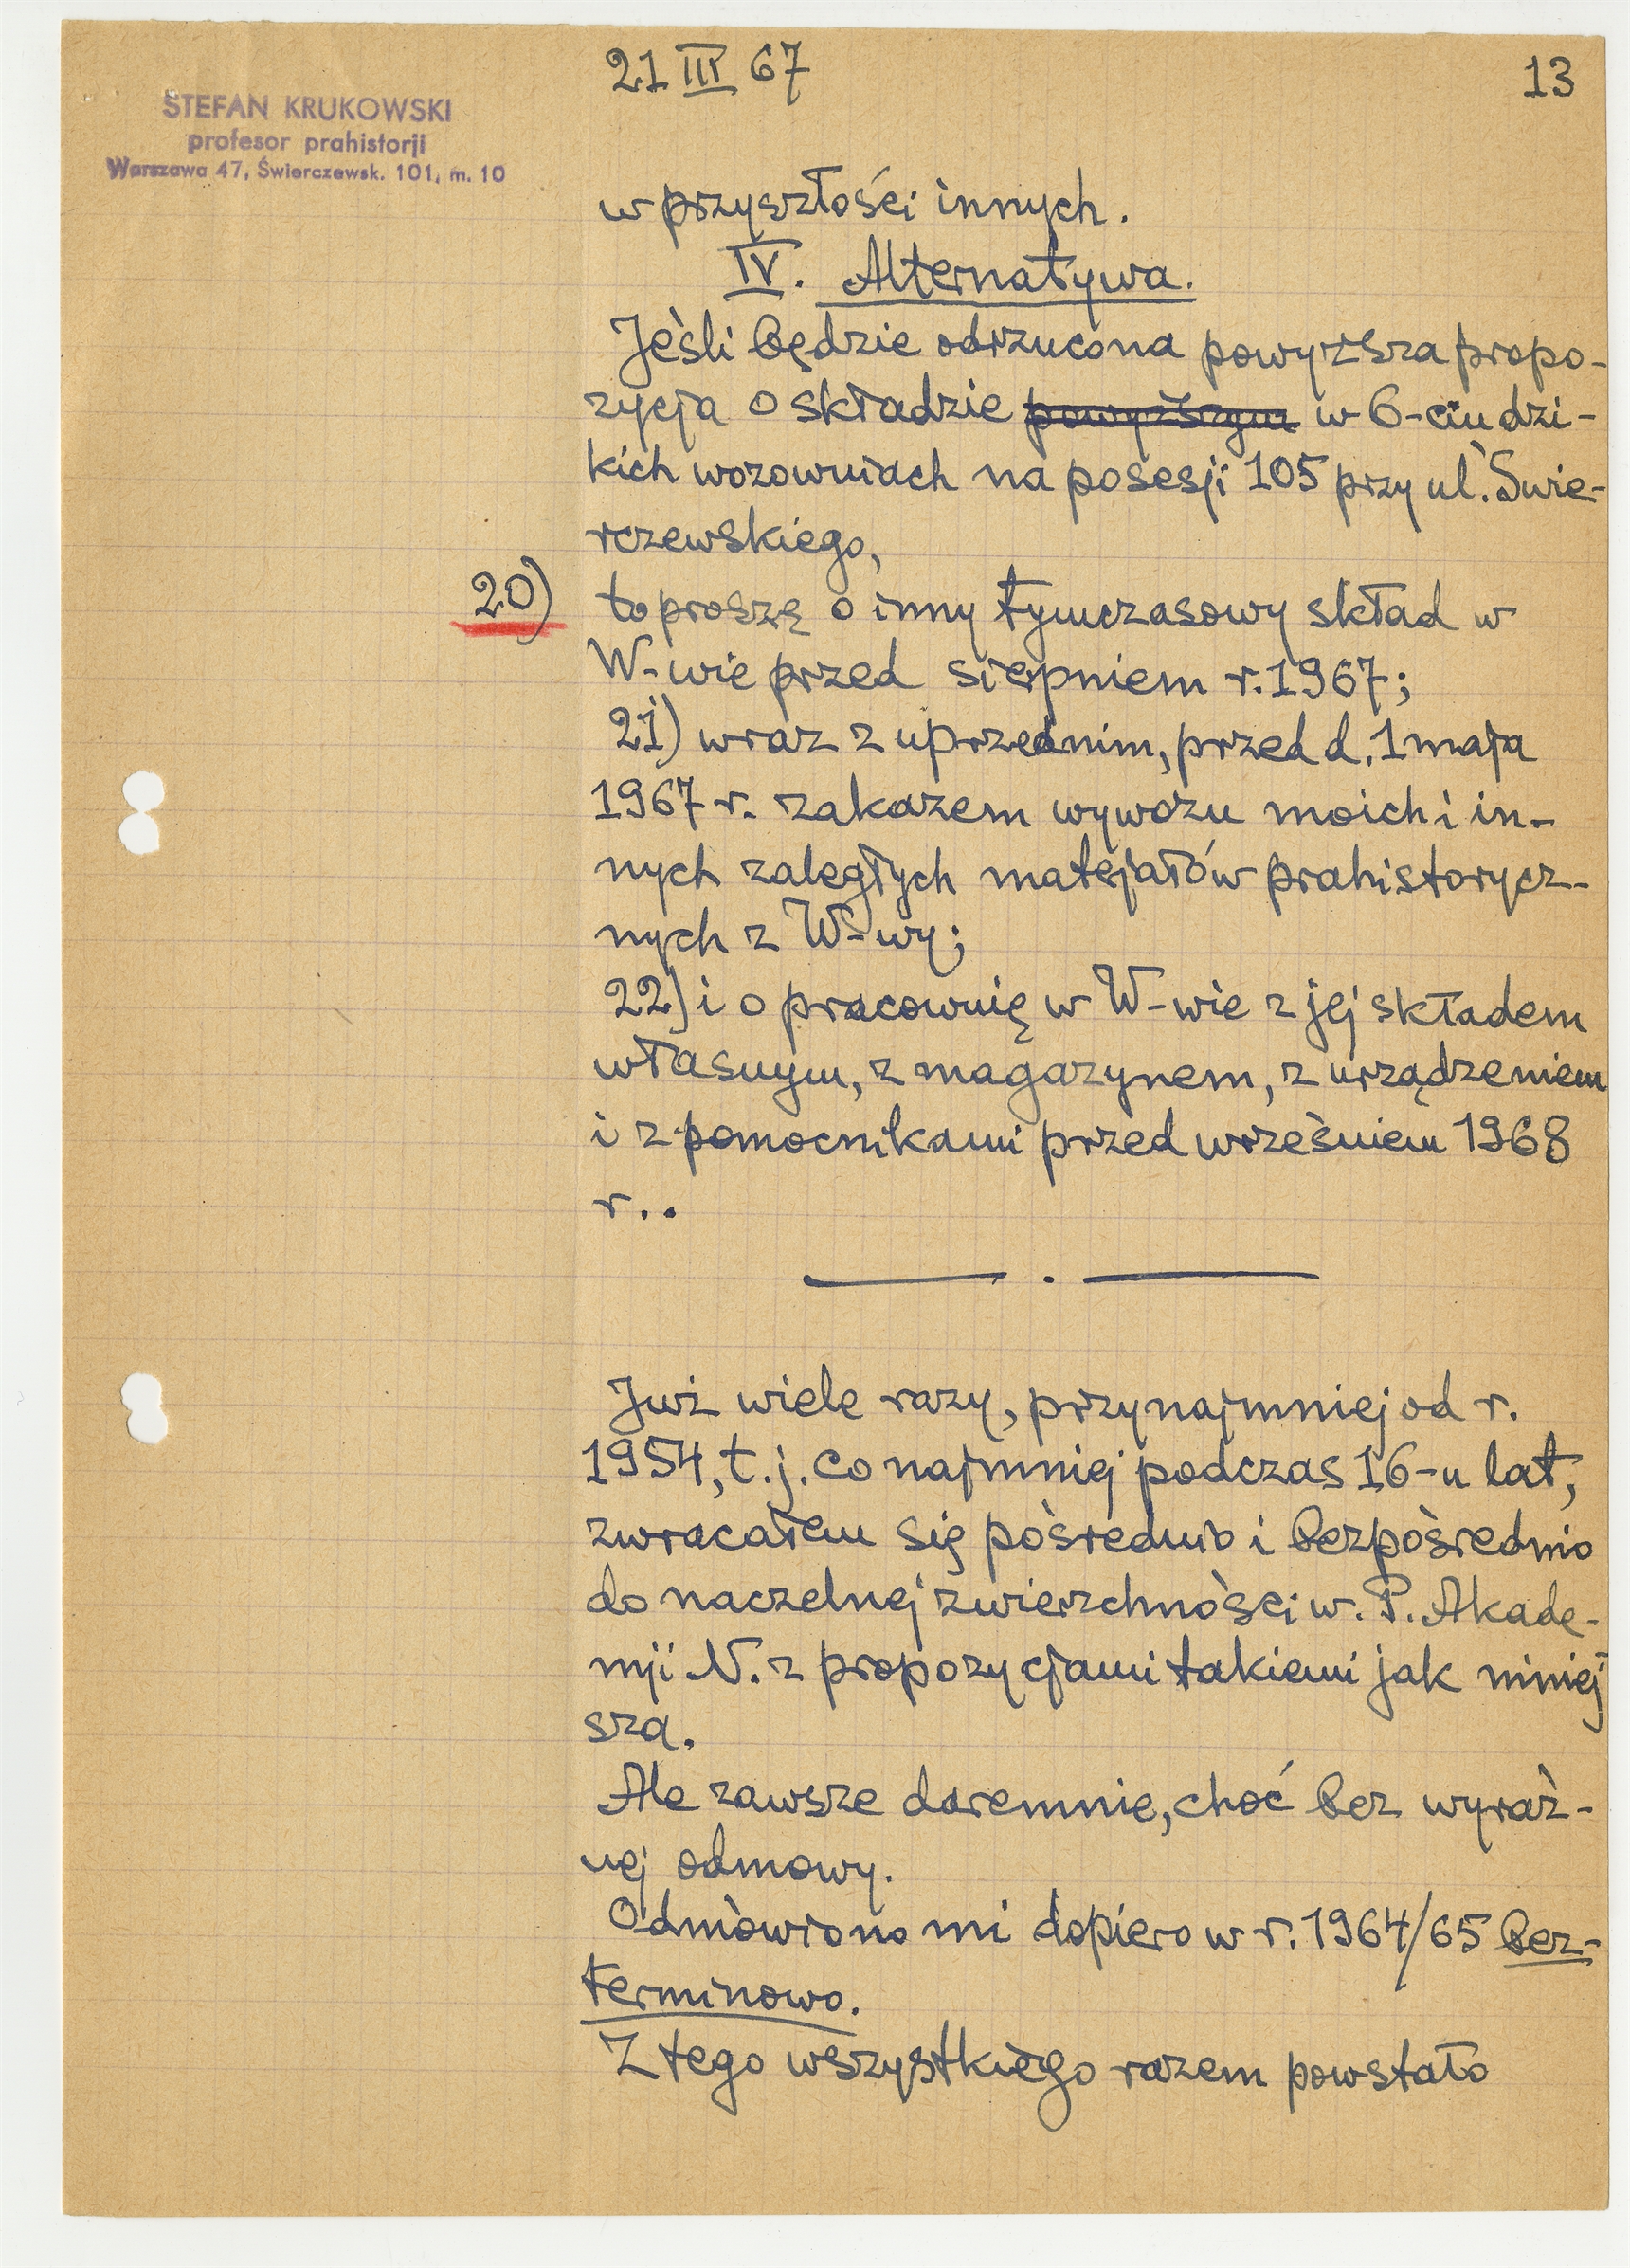 21 III 67
13
STEFAN KRUKOWSKI
profesor prahistorji
Warszawa 47, Świerczewsk. 101, m. 10
w przyszłości innych.
IV. Alternatywa.
Jeśli będzie odrzucona powyższa propo-
zycja o składzie powyższym w 6-ciu dzi-
kich wozowniach na posesji 105 przy ul. Świe-
rczewskiego,
20) to proszę o inny tymczasowy skład w
W-wie przed sierpniem r. 1967;
21) wraz z uprzednim, przed d. 1 maja
1967 r. zakazem wywozu moich i in-
nych zaległych materjałów prahistorycz-
nych z W-wy;
22) i o pracownię w W-wie z jej składem
własnym, z magazynem, z urządzeniem
i z pomocnikami przed wrześniem 1968
r..
Już wiele razy, przynajmniej od r.
1954, t.j. co najmniej podczas 16-u lat,
zwracałem się pośrednio i bezpośrednio
do naczelnej zwierzchności w. P. Akade-
mji N. z propozycjami takiemi jak niniej
sza.
Ale zawsze daremnie, choć bez wyraź-
nej odmowy.
Odmówiono mi dopiero w r. 1964/65 bez-
terminowo.
Z tego wszystkiego razem powstało